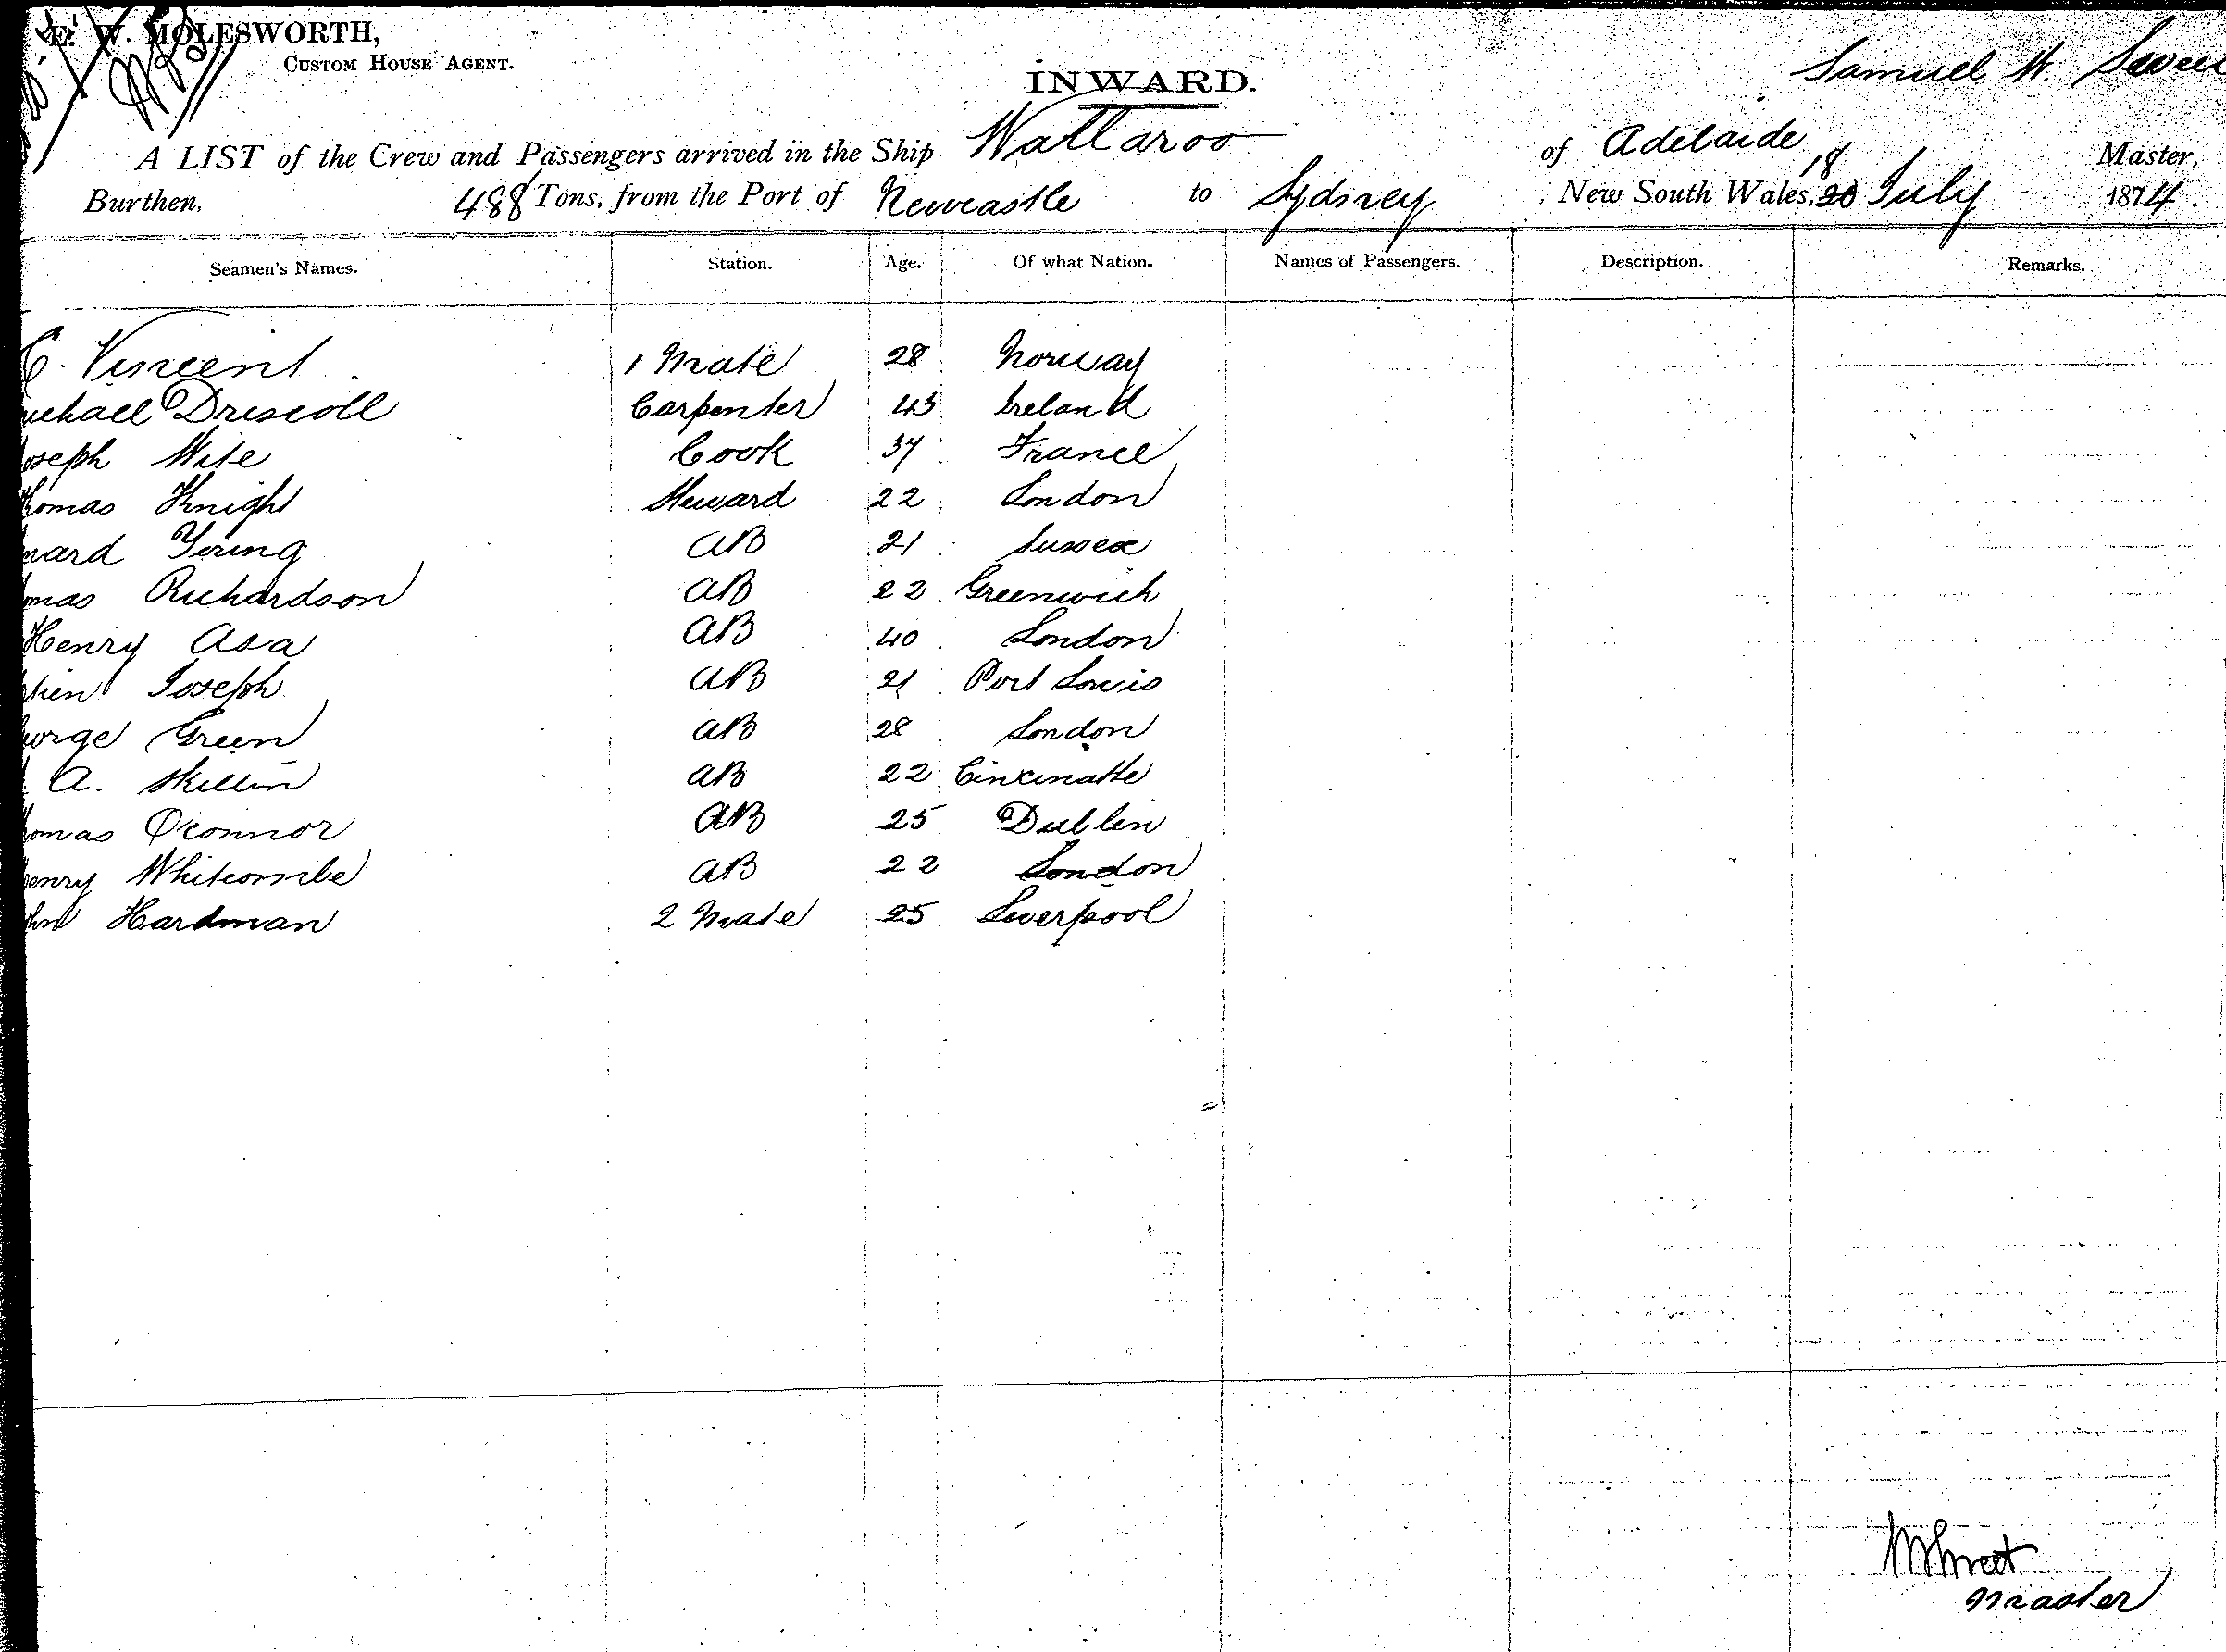 E. W. MOLESWORTH,
CUSTOM HOUSE AGENT.
INWARD.
Samuel W.
A LIST of the Crew and Passengers arrived in the Ship Wallaroo of Adelaide Master,
Burthen, 488 Tons, from the Port of Newcastle to Sydney New South Wales, 18 July 1874.
Seamen's Names. Station. Age. Of what Nation. Names of Passengers. Description. Remarks.
C. Vincent 1 Mate 28 Norway
ichael Driscoll Carpenter 45 Ireland
oseph Cook 37 France
homas Knight Steward 22 London
ward Young AB 21 Sussex
mas Richardson AB 22 Greenwich
Henry Asa AB 40 London
phen Joseph AB 21 Port Louis
eorge Green AB 28 London
A. Skillin AB 22 Cincinatte
homas O'Connor AB 25 Dublin
enry Whitcombe AB 22 London
ohn Hardman 2 Mate 25 Liverpool
Master